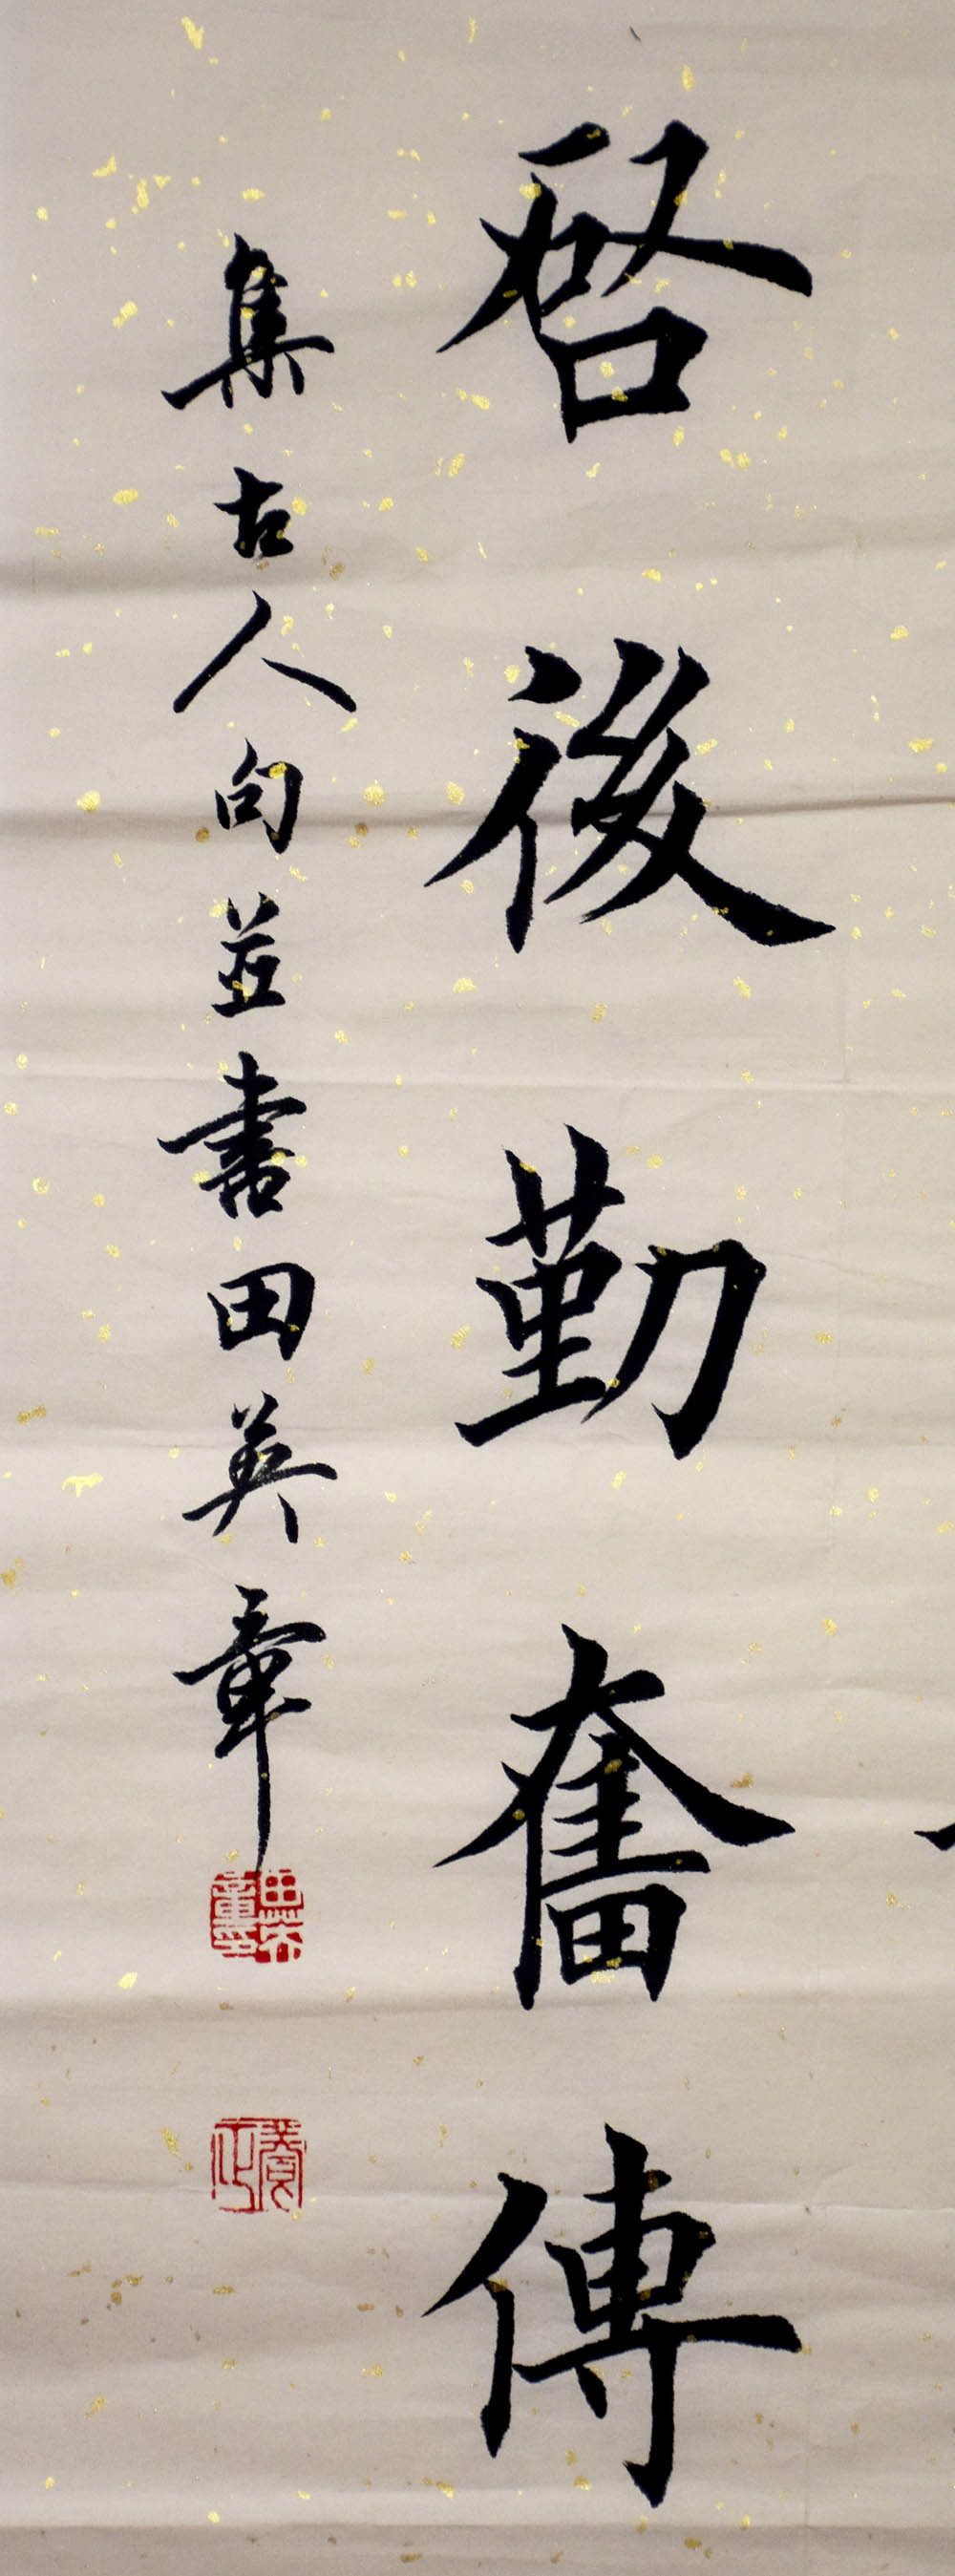 啓後勤奮傳
集古人句並書田英章